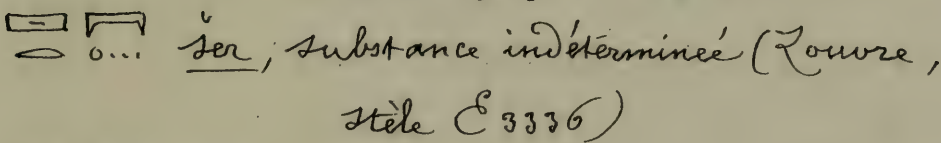 šer, substance indéterminée (Louvre,
stèle E 3336)